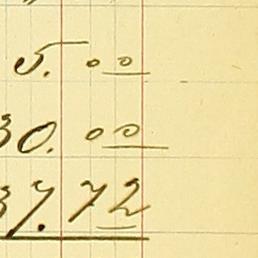 5. 00
30. 00
37. 72